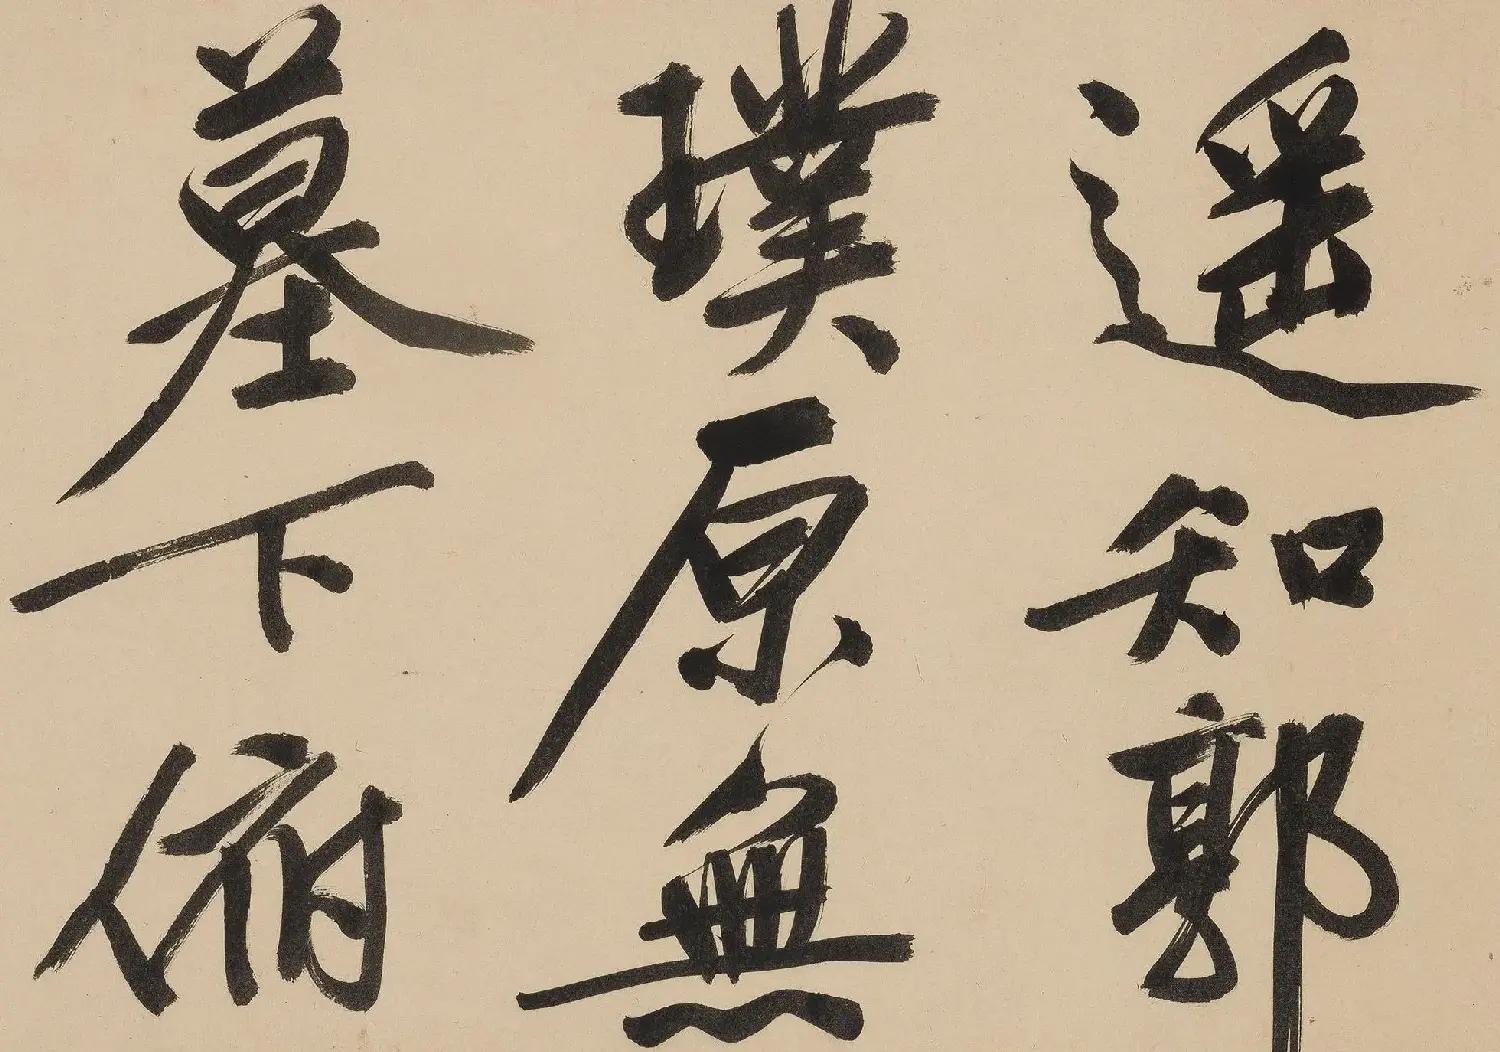 遥知郭
璞原無
墓下俯